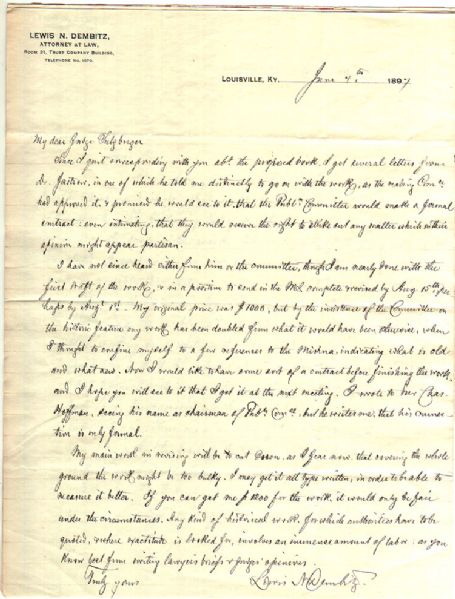 LEWIS N. DEMBITZ,
ATTORNEY AT LAW,
ROOM 31, TRUST COMPANY BUILDING,
TELEPHONE No. 1070.
LOUISVILLE, KY. June 4th 1897
My dear Judge Sulzberger
Since I quit corresponding with you abt. the proposed book, I got several letters from
Dr. Jastrow, in one of which he told me distinctly to go on with the work, as the making Comee
had approved it, & promised he would see to it, that the Publn Committee would make a formal
contract: even intimating, that they would reserve the right to strike out any matter which in their
opinion might appear partisan.
I have not since heard either from him or the committee, though I am nearly done with the
first draft of the work, & in a position to send in the MS. complete & revised by Aug 15th, per
haps by Augt 1st. My original price was $1000, but by the insistence of the Committee on
the historic feature my work has been doubled from what it would have been otherwise, when
I thought to confine myself to a few references to the Mishna, indicating what is old
and what new. Now I would like to have some sort of a contract before finishing the work,
and I hope you will see to it that I get it at the next meeting. I wrote to Mr Chas.
Hoffman, seeing his name as chairman of Publn Comee, but he writes me, that his connec-
tion is only formal.
My main work in revising will be to cut down, as I fear now that covering the whole
ground the work might be too bulky. I may get it all type written, in order to be able to
measure it better. If you can get me $1200 for the work it would only be fair
under the circumstances. Any kind of historical work for which authorities have to be
quoted, & where exactitude is looked for, involves an immense amount of labor: as you
know best from writing lawyers briefs & judges opinions.
Truly yours Lewis N. Dembitz